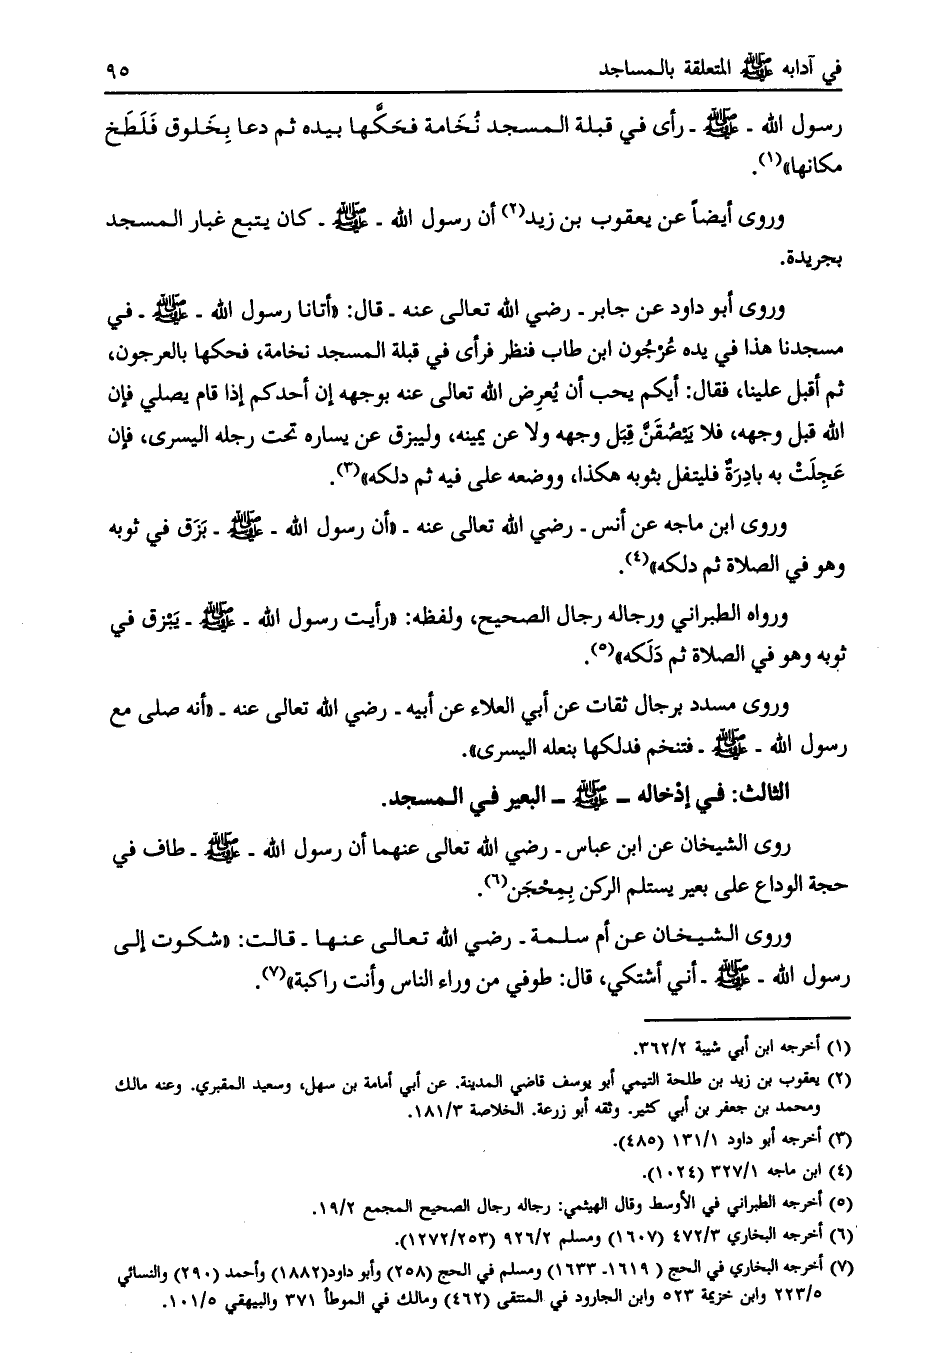 في آدابه ﷺ المتعلقة بالمساجد ٩٥
رسول الله ـ ﷺ ـ رأى في قبلة المسجد نُخَامة فحَكَّها بيده ثم دعا بِخَلوق فَلَطَخ
مكانها»(١).
وروى أيضاً عن يعقوب بن زيد(٢) أن رسول الله ـ ﷺ ـ كان يتبع غبار المسجد
بجريدة.
وروى أبو داود عن جابر ـ رضي الله تعالى عنه ـ قال: «أتانا رسول الله ـ ﷺ ـ في
مسجدنا هذا في يده عُرْجُون ابن طاب فنظر فرأى في قبلة المسجد نخامة، فحكها بالعرجون،
ثم أقبل علينا، فقال: أيكم يحب أن يُعرِض الله تعالى عنه بوجهه إن أحدكم إذا قام يصلي فإن
الله قبل وجهه، فلا يَبْصُقَنَّ قِبَل وجهه ولا عن يمينه، وليبزق عن يساره تحت رجله اليسرى، فإن
عَجِلَتْ به بادِرَةٌ فليتفل بثوبه هكذا، ووضعه على فيه ثم دلكه»(٣).
وروى ابن ماجه عن أنس ـ رضي الله تعالى عنه ـ «أن رسول الله ـ ﷺ ـ بَزَق في ثوبه
وهو في الصلاة ثم دلكه»(٤).
ورواه الطبراني ورجاله رجال الصحيح، ولفظه: «رأيت رسول الله ـ ﷺ ـ يَبْزق في
ثوبه وهو في الصلاة ثم دَلَكه»(٥).
وروى مسدد برجال ثقات عن أبي العلاء عن أبيه ـ رضي الله تعالى عنه ـ «أنه صلى مع
رسول الله ـ ﷺ ـ فتنخم فدلكها بنعله اليسرى».
الثالث: في إذخاله ـ ﷺ ـ البعير في المسجد.
روى الشيخان عن ابن عباس ـ رضي الله تعالى عنهما أن رسول الله ـ ﷺ ـ طاف في
حجة الوداع على بعير يستلم الركن بِمِحْجَن(٦).
وروى الشيخان عن أم سلمة ـ رضي الله تعالى عنها ـ قالت: «شكوت إلى
رسول الله ـ ﷺ ـ أني أشتكي، قال: طوفي من وراء الناس وأنت راكبة»(٧).
(١) أخرجه ابن أبي شيبة ٣٦٢/٢.
(٢) يعقوب بن زيد بن طلحة التيمي أبو يوسف قاضي المدينة. عن أبي أمامة بن سهل، وسعيد المقبري. وعنه مالك
ومحمد بن جعفر بن أبي كثير. وثقه أبو زرعة. الخلاصة ١٨١/٣.
(٣) أخرجه أبو داود ١٣١/١ (٤٨٥).
(٤) ابن ماجه ٣٢٧/١ (١٠٢٤).
(٥) أخرجه الطبراني في الأوسط وقال الهيثمي: رجاله رجال الصحيح المجمع ١٩/٢.
(٦) أخرجه البخاري ٤٧٢/٣ (١٦٠٧) ومسلم ٩٢٦/٢ (١٢٧٢/٢٥٣).
(٧) أخرجه البخاري في الحج ( ١٦١٩ـ ١٦٣٣) ومسلم في الحج (٢٥٨) وأبو داود(١٨٨٢) وأحمد (٢٩٠) والنسائي
٢٢٣/٥ وابن خزيمة ٥٢٣ وابن الجارود في المنتقى (٤٦٢) ومالك في الموطأ ٣٧١ والبيهقي ١٠١/٥.